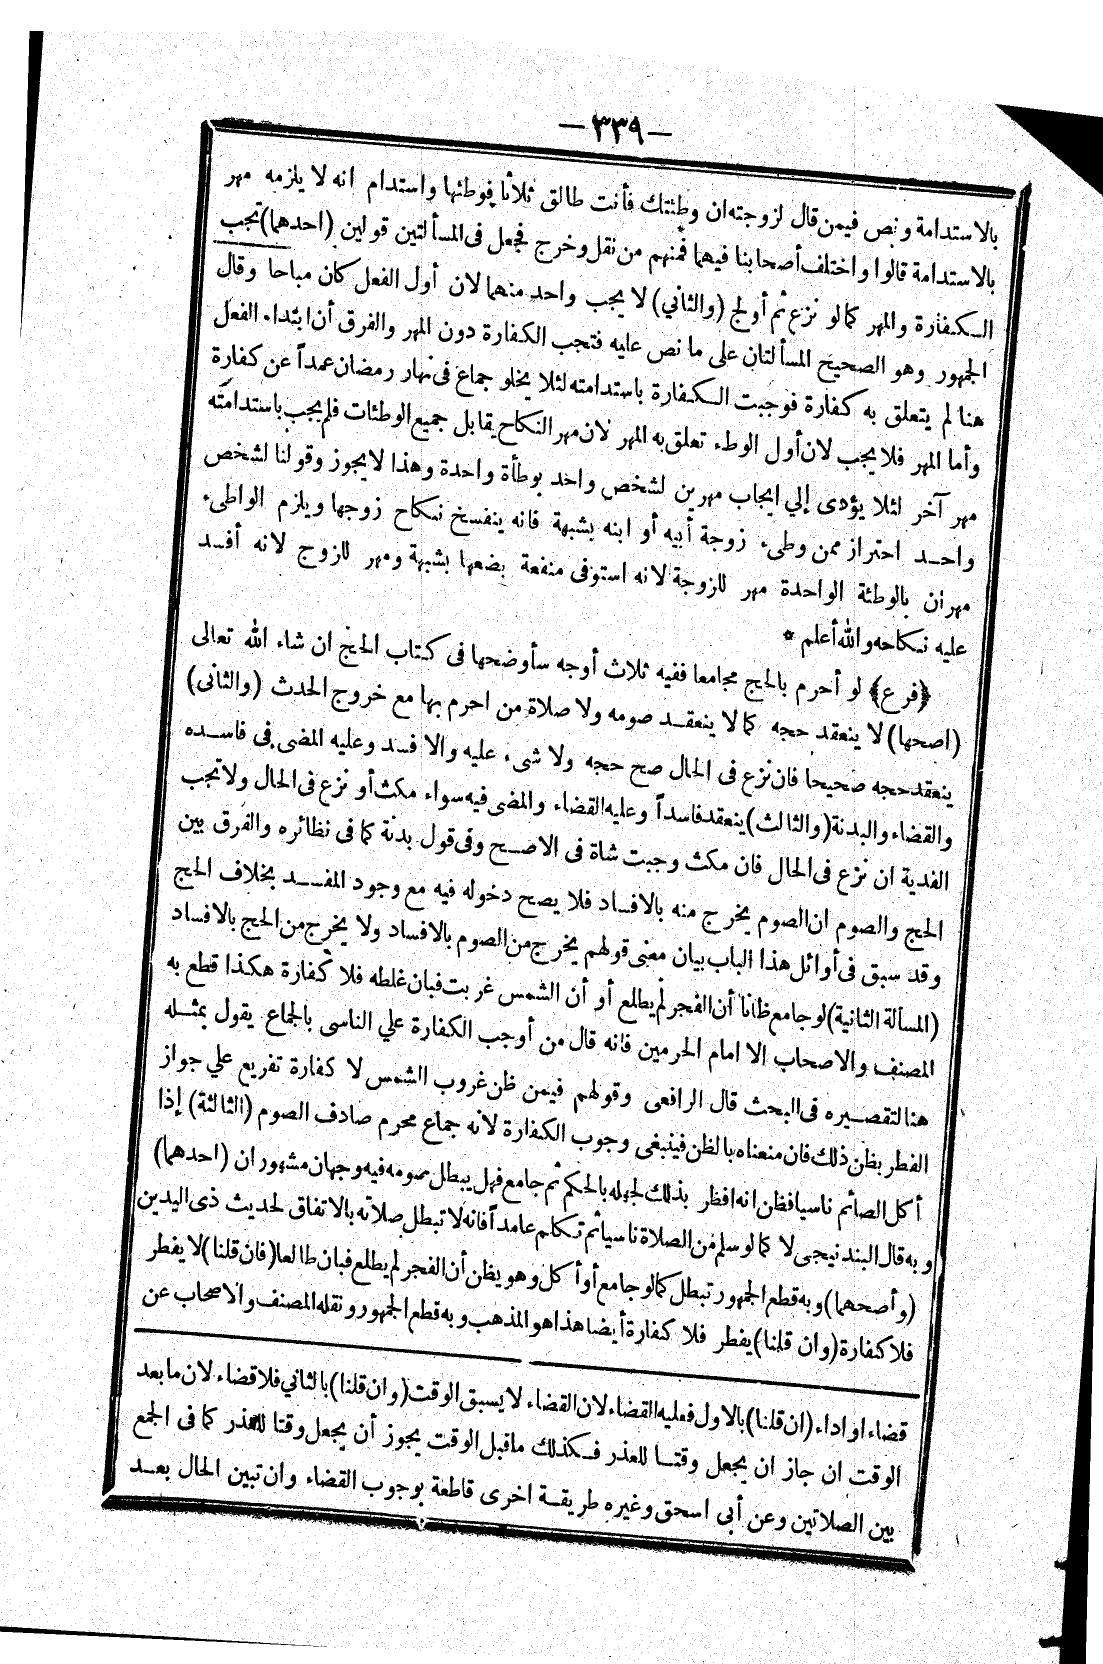 — ٣٣٩ —
بالاستدامة ونص فيمن قال لزوجته ان وطئتك فأنت طالق ثلاثا فوطئها واستدام انه لا يلزمه مهر
بالاستدامة قالوا واختلف أصحابنا فيهما فمنهم من نقل وخرج فجعل فى المسألتين قولين (احدهما) تجب
الكفارة والمهر كما لو نزع ثم أولج (والثاني) لا يجب واحد منهما لان أول الفعل كان مباحا وقال
الجمهور وهو الصحيح المسألتان على ما نص عليه فتجب الكفارة دون المهر والفرق أن ابتداء الفعل
هنا لم يتعلق به كفارة فوجبت الكفارة باستدامته لئلا يخلو جماع فى نهار رمضان عمداً عن كفارة
وأما المهر فلا يجب لان أول الوطء تعلق به المهر لان مهر النكاح يقابل جميع الوطئات فلم يجب باستدامته
مهر آخر لئلا يؤدى إلي ايجاب مهرين لشخص واحد بوطأة واحدة وهذا لا يجوز وقولنا لشخص
واحد احتراز ممن وطىء زوجة أبيه أو ابنه بشبهة فانه ينفسخ نكاح زوجها ويلزم الواطىء
مهران بالوطئة الواحدة مهر للزوجة لانه استوفى منفعة بضعها بشبهة ومهر للزوج لانه أفسد
عليه نكاحه والله أعلم *
﴿فرع﴾ لو أحرم بالحج مجامعا ففيه ثلاث أوجه سأوضحها فى كتاب الحج ان شاء الله تعالى
(اصحها) لا ينعقد حجه كما لا ينعقد صومه ولا صلاة من احرم بها مع خروج الحدث (والثانى)
ينعقد حجه صحيحا فان نزع فى الحال صح حجه ولا شىء عليه والا فسد وعليه المضى فى فاسده
والقضاء والبدنة (والثالث) ينعقد فاسداً وعليه القضاء والمضى فيه سواء مكث أو نزع فى الحال ولا تجب
الفدية ان نزع فى الحال فان مكث وجبت شاة فى الاصح وفى قول بدنة كما فى نظائره والفرق بين
الحج والصوم ان الصوم يخرج منه بالافساد فلا يصح دخوله فيه مع وجود المفسد بخلاف الحج
وقد سبق فى أوائل هذا الباب بيان معنى قولهم يخرج من الصوم بالافساد ولا يخرج من الحج بالافساد
(المسألة الثانية) لو جامع ظانا أن الفجر لم يطلع أو أن الشمس غربت فبان غلطه فلا كفارة هكذا قطع به
المصنف والاصحاب الا امام الحرمين فانه قال من أوجب الكفارة علي الناسى بالجماع يقول بمثله
هنا لتقصيره فى البحث قال الرافعى وقولهم فيمن ظن غروب الشمس لا كفارة تفريع علي جواز
الفطر بظن ذلك فان منعناه بالظن فينبغى وجوب الكفارة لانه جماع محرم صادف الصوم (الثالثة) إذا
أكل الصائم ناسيا فظن انه افطر بذلك لجهله بالحكم ثم جامع فهل يبطل صومه فيه وجهان مشهوران (احدهما)
وبه قال البندنيجى لا كما لو سلم من الصلاة ناسيا ثم تكلم عامداً فانه لا تبطل صلاته بالاتفاق لحديث ذى اليدين
(وأصحهما) وبه قطع الجمهور تبطل كما لو جامع أو أكل وهو يظن أن الفجر لم يطلع فبان طالعا (فان قلنا) لا يفطر
فلا كفارة (وان قلنا) يفطر فلا كفارة أيضا هذا هو المذهب وبه قطع الجمهور ونقله المصنف والاصحاب عن
قضاء او اداء (ان قلنا) بالاول فعليه القضاء لان القضاء لا يسبق الوقت (وان قلنا) بالثاني فلا قضاء لان ما بعد
الوقت ان جاز ان يجعل وقتا للعذر فكذلك ما قبل الوقت يجوز أن يجعل وقتا للعذر كما فى الجمع
بين الصلاتين وعن أبى اسحق وغيره طريقة اخرى قاطعة بوجوب القضاء وان تبين الحال بعد